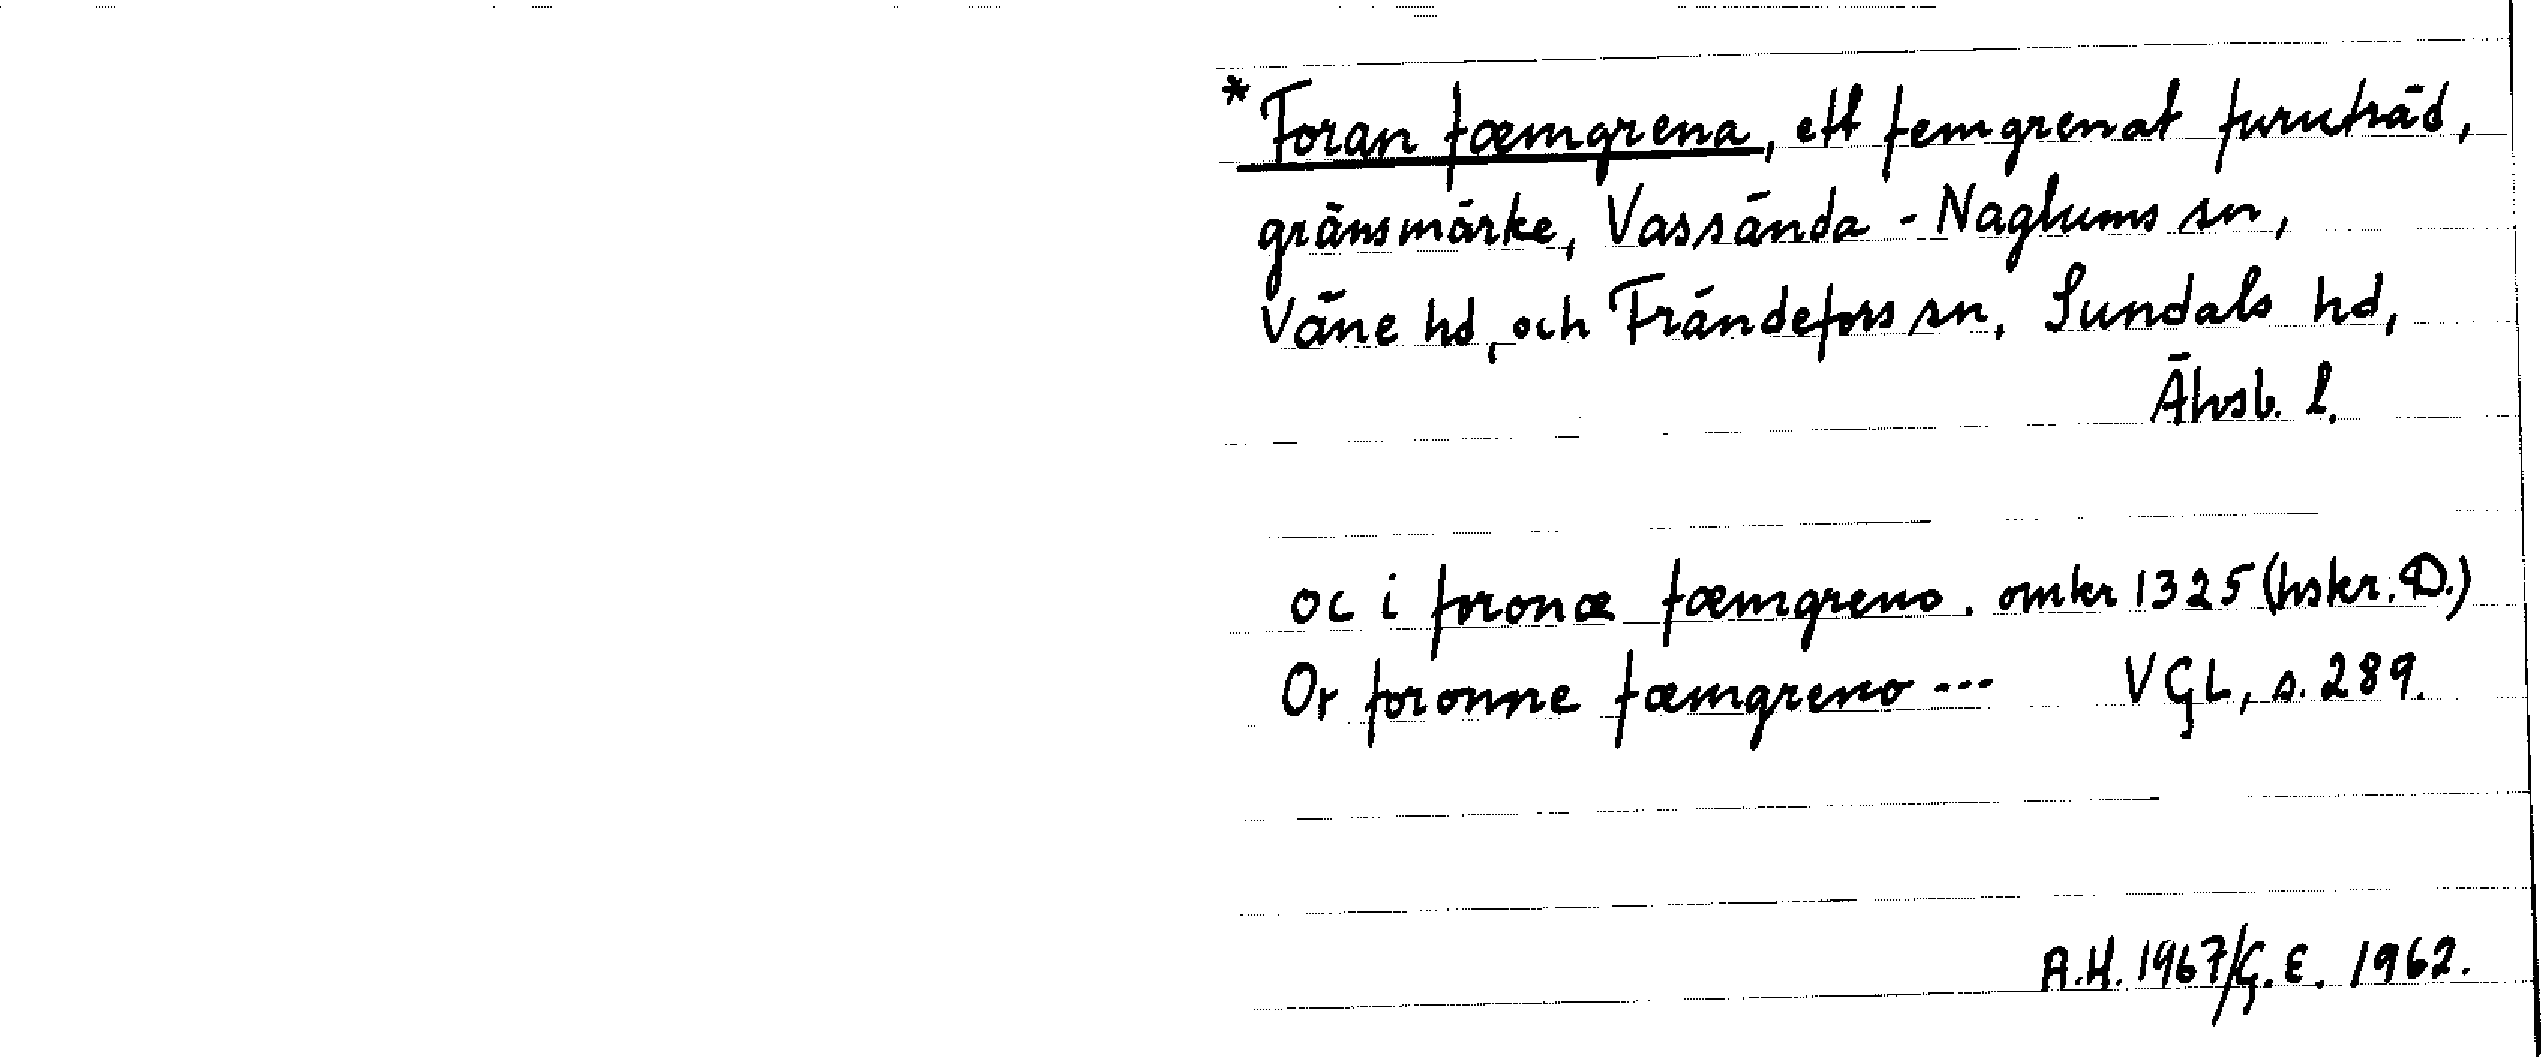 *Foran fæmgrena, ett femgrenat furuträd,
gränsmärke, Vassända-Naglums sn,
Väne hd, och Frändefors sn, Sundals hd,
Älvsb. l.
oc i foronæ fæmgreno. omkr 1325 (hskr. D.)
Or foronne fæmgreno --- VGL, s. 289.
A.H. 1967/G.E. 1962.